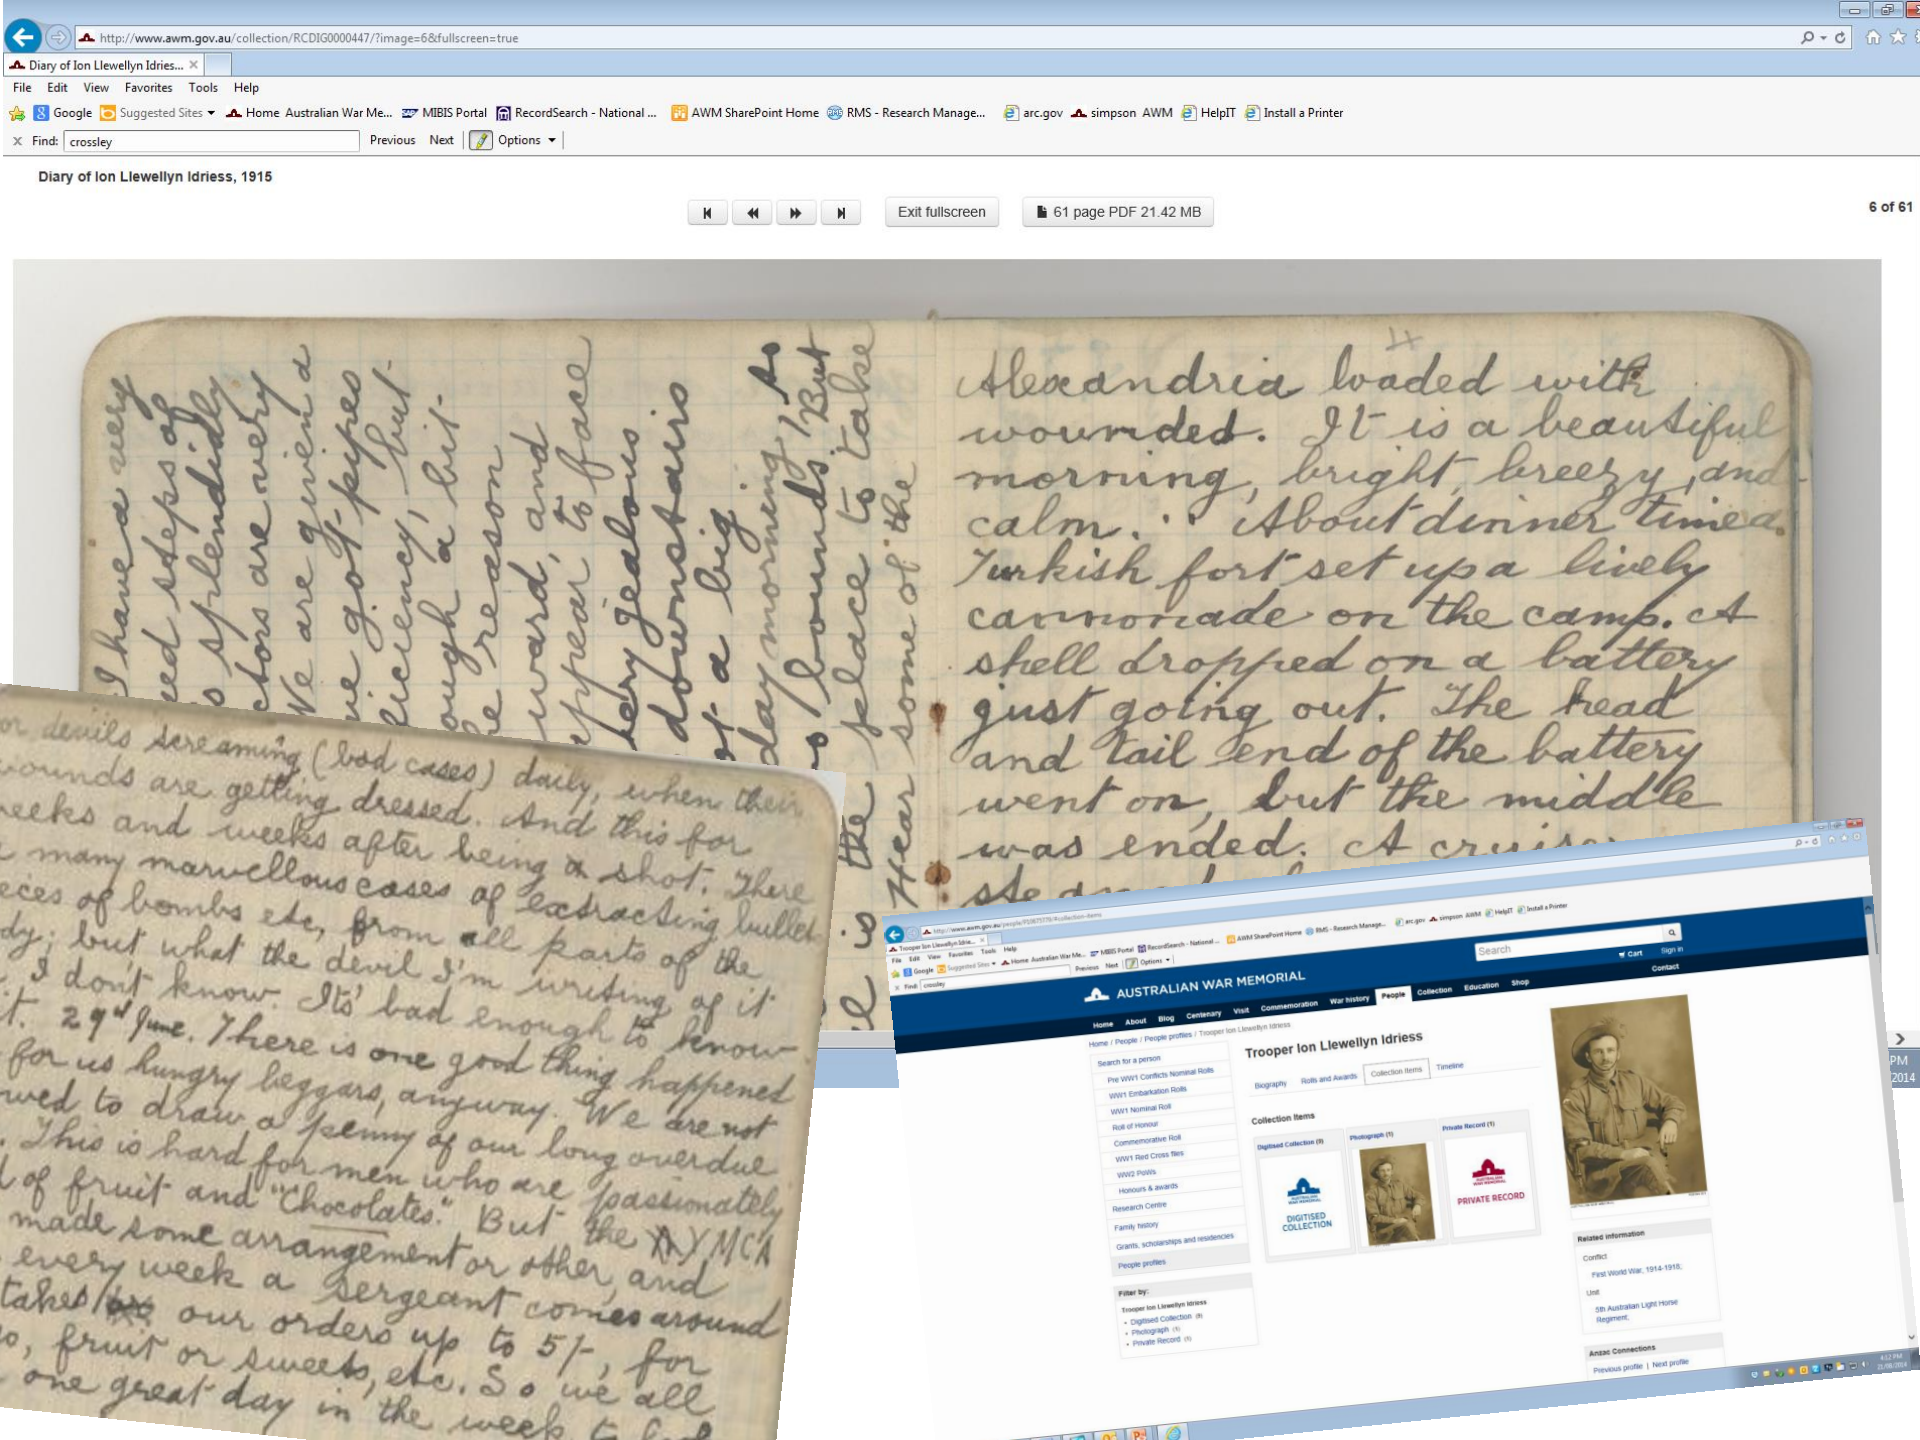 http://www.awm.gov.au/collection/RCDIG0000447/?image=6&fullscreen=true
Diary of Ion Llewellyn Idries...
File Edit View Favorites Tools Help
Google Suggested Sites Home Australian War Me... MIBIS Portal RecordSearch - National ... AWM SharePoint Home RMS - Research Manage... arc.gov simpson AWM HelpIT Install a Printer
X Find: crossley Previous Next Options
Diary of Ion Llewellyn Idriess, 1915
Exit fullscreen 61 page PDF 21.42 MB
6 of 61
I have a very
steps of
splendidly
ctors are very
We are given a
got pyres
iciency, but
ough a bit
reason
ward, and
ppear to face
very jealous
downstairs
of a big
day morning, As
/ bounds. But
the place to take
Hear some of the
4
Alexandria loaded with
wounded. It is a beautiful
morning, bright, breezy, and
calm. About dinner time a
Turkish fort set up a lively
cannonade on the camp. A
shell dropped on a battery
just going out. The head
and tail end of the battery
went on, but the middle
was ended. A cruiser
or devils screaming (bad cases) daily, when their
wounds are getting dressed. And this for
weeks and weeks after being a shot. There
many marvellous cases of extracting bullet
eces of bombs etc, from all parts of the
dy; but what the devil I'm writing of it
I dont know. Its' bad enough to know
it. 29th June. There is one good thing happened
for us hungry beggars, anyway. We are not
wed to draw a penny of our long overdue
. This is hard for men who are passionately
d of fruit and "Chocolates." But the YMCA
made some arrangement or other, and
every week a sergeant comes around
takes our orders up to 5/-, for
o, fruit or sweets, etc. So we all
one great day in the week to
http://www.awm.gov.au/people/
Trooper Ion Llewellyn Idrie...
File Edit View Favorites Tools Help
Google Suggested Sites Home Australian War Me... MIBIS Portal RecordSearch - National ... AWM SharePoint Home RMS - Research Manage... arc.gov simpson AWM HelpIT Install a Printer
X Find: crossley Previous Next Options
Search
Cart Sign in
Contact
AUSTRALIAN WAR MEMORIAL
Home About Blog Centenary Visit Commemoration War history People Collection Education Shop
Home / People / People profiles / Trooper Ion Llewellyn Idriess
Search for a person
Pre WW1 Conflicts Nominal Rolls
WW1 Embarkation Rolls
WW1 Nominal Roll
Roll of Honour
Commemorative Roll
WW1 Red Cross files
WW2 PoWs
Honours & awards
Research Centre
Family history
Grants, scholarships and residencies
People profiles
Filter by:
Trooper Ion Llewellyn Idriess
• Digitised Collection (9)
• Photograph (1)
• Private Record (1)
Trooper Ion Llewellyn Idriess
Biography Rolls and Awards Collection Items Timeline
Collection Items
Digitised Collection (9) Photograph (1) Private Record (1)
AUSTRALIAN WAR MEMORIAL
DIGITISED COLLECTION
AUSTRALIAN WAR MEMORIAL
PRIVATE RECORD
Related information
Conflict
First World War, 1914-1918;
Unit
5th Australian Light Horse
Regiment;
Anzac Connections
Previous profile | Next profile
PM
2014
4:12 PM